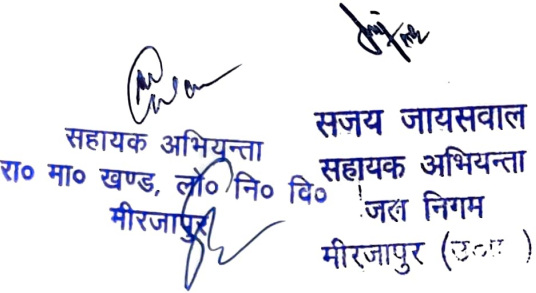 सहायक अभियन्ता
रा० मा० खण्ड, लो० नि० वि०
मीरजापुर
सजय जायसवाल
सहायक अभियन्ता
जल निगम
मीरजापुर